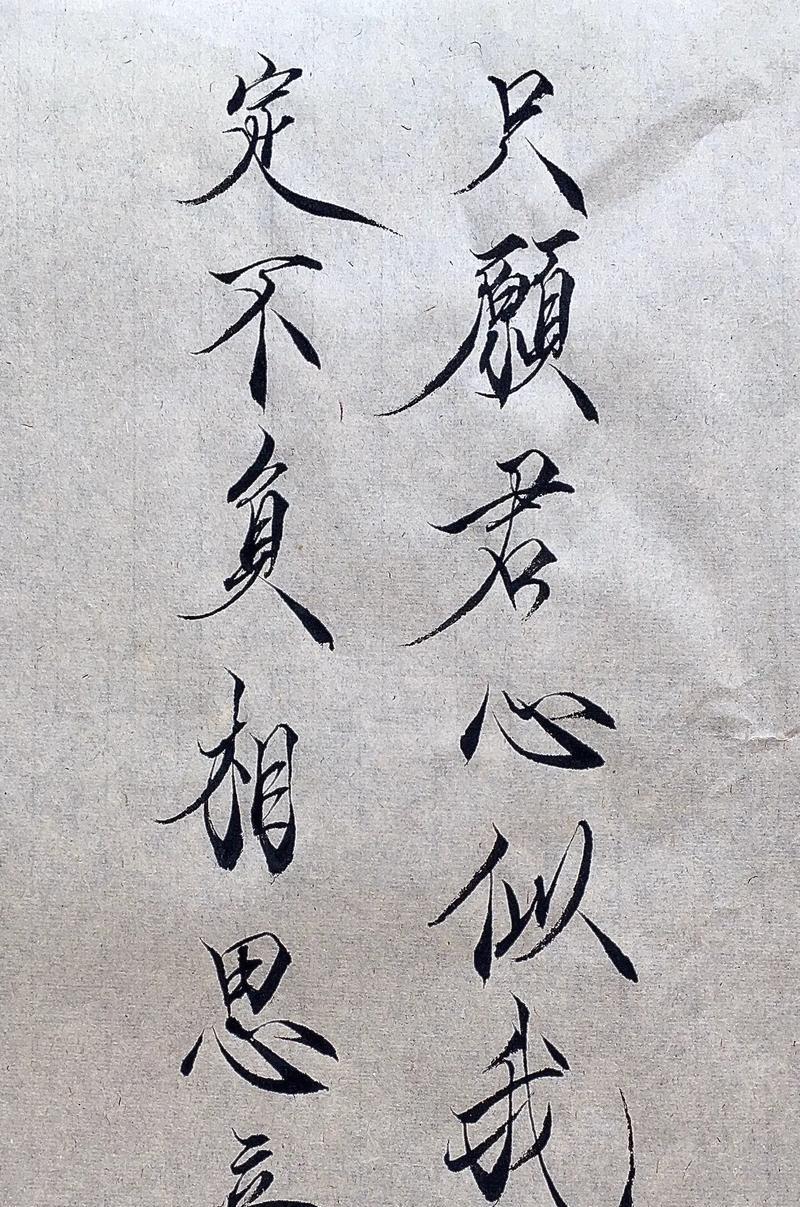 只願君心似我
定不負相思